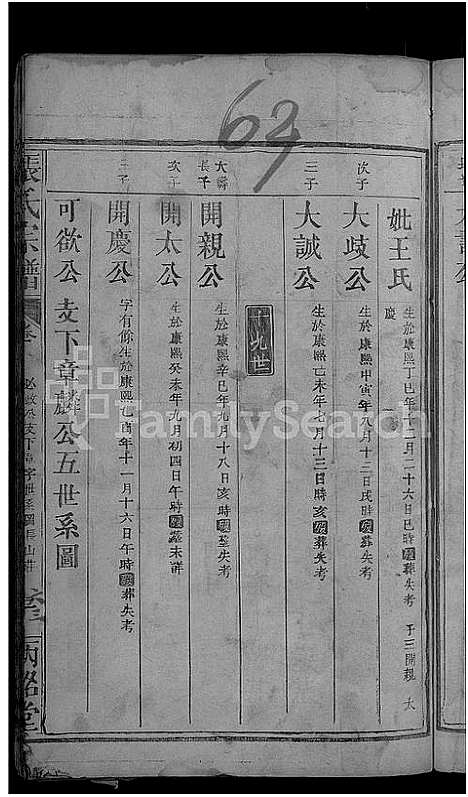 63
妣王氏 生於康熙丁巳年十二月二十六日巳時 葬失考 子三開親 太
慶
次子 大歧公 生於康熙甲寅年八月十三日戌時歿葬失考
三子 大誠公 生於康熙己未年七月十三日時亥歿葬失考
十九世
大歧長子 開親公 生於康熙辛巳年九月十八日亥時歿葬失考
次子 開太公 生於康熙癸未年九月初四日午時歿葬未詳
三子 開慶公 字有餘生於康熙乙酉年十一月十六日午時歿葬失考
可欲公支下章公五世系圖
張氏宗譜 卷
FamilySearch